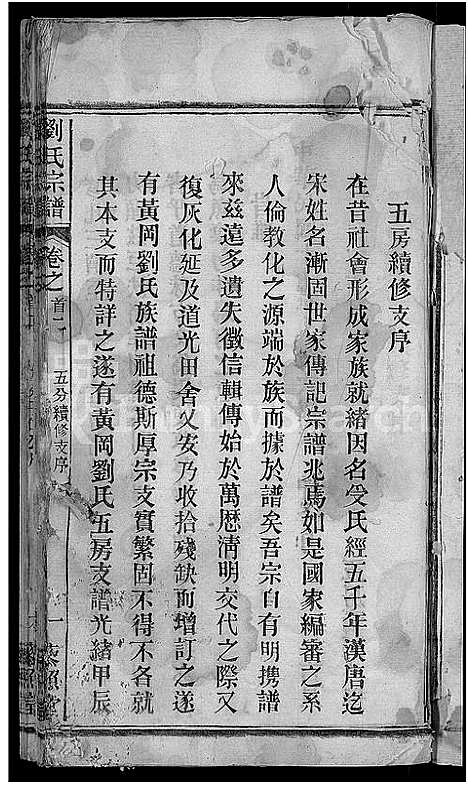 五房續修支序
在昔社會形成家族就緒因名受氏經五千年漢唐迄
宋姓名漸固世家傳記宗譜兆焉如是國家編審之系
人倫教化之源端於族而據於譜矣吾宗自有明攜譜
來茲遠多遺失徵信輯傳始於萬曆清明交代之際又
復灰化延及道光田舍乂安乃收拾殘缺而增訂之遂
有黃岡劉氏族譜祖德斯厚宗支質繁固不得不各就
其本支而特詳之遂有黃岡劉氏五房支譜光緒甲辰
劉氏宗譜
卷之首一
五分續修支序
一
藜照堂